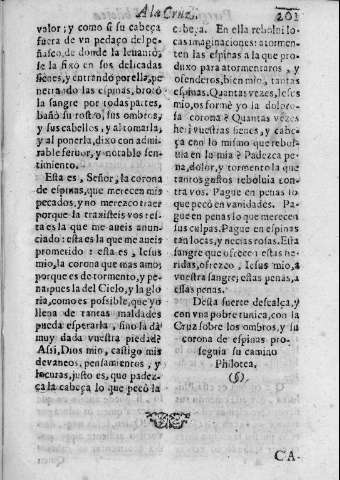 A la Cruz.
201
valor; y como si su cabeça
fuera de vn pedaço del pe-
ñasco, de donde la leuantò,
se la fixò en sus delicadas
sienes, y entrando por ella, pe-
netrando las espinas, brotò
la sangre por todas partes,
bañò su rostro, sus ombros,
y sus cabellos, y al tomarla,
y al ponerla, dixo con admi-
rable feruor, y notable sen-
timiento.
Esta es, Señor, la corona
de espinas, que merecen mis
pecados, y no merezco traer
porque la traxisteis vos: es-
ta es la que me aueis anun-
ciado: esta es la que me aueis
prometido: esta es, Iesus
mio, la corona que mas amo;
porque es de tormento, y pe-
na: pues la del Cielo, y la glo
ria, como es possible, que yo
llena de tantas maldades
pueda esperarla, sino la dà
muy dada vuestra piedad?
Assi, Dios mio, castigo mis
devaneos, pensamientos, y
locuras, justo es, que padez-
ça la cabeça lo que pecò la
cabeça. En ella rebolui lo-
cas imaginaciones: atormen-
ten las espinas a la que pro-
duxo para atormentaros, y
ofenderos, bien mio, tantas
espinas. Quantas vezes, Iesus
mio, os formè yo la doloro-
sa corona? Quantas vezes
heri vuestras sienes, y cabe-
ça con lo mismo que rebol-
uia en la mia? Padezca pe-
na, dolor, y tormento la que
tantos gustos reboluia con-
tra vos. Pague en penas lo
que pecò en vanidades. Pa-
gue en penas lo que merecen
sus culpas. Pague en espinas
tan locas, y necias rosas. Esta
sangre que ofrece: estas he-
ridas, ofrezco, Iesus mio, a
vuestra sangre; estas penas, a
essas penas.
Desta suerte descalça, y
con vna pobre tunica, con la
Cruz sobre los ombros, y su
corona de espinas pro-
seguia su camino
Philotea,
(§)
CA-